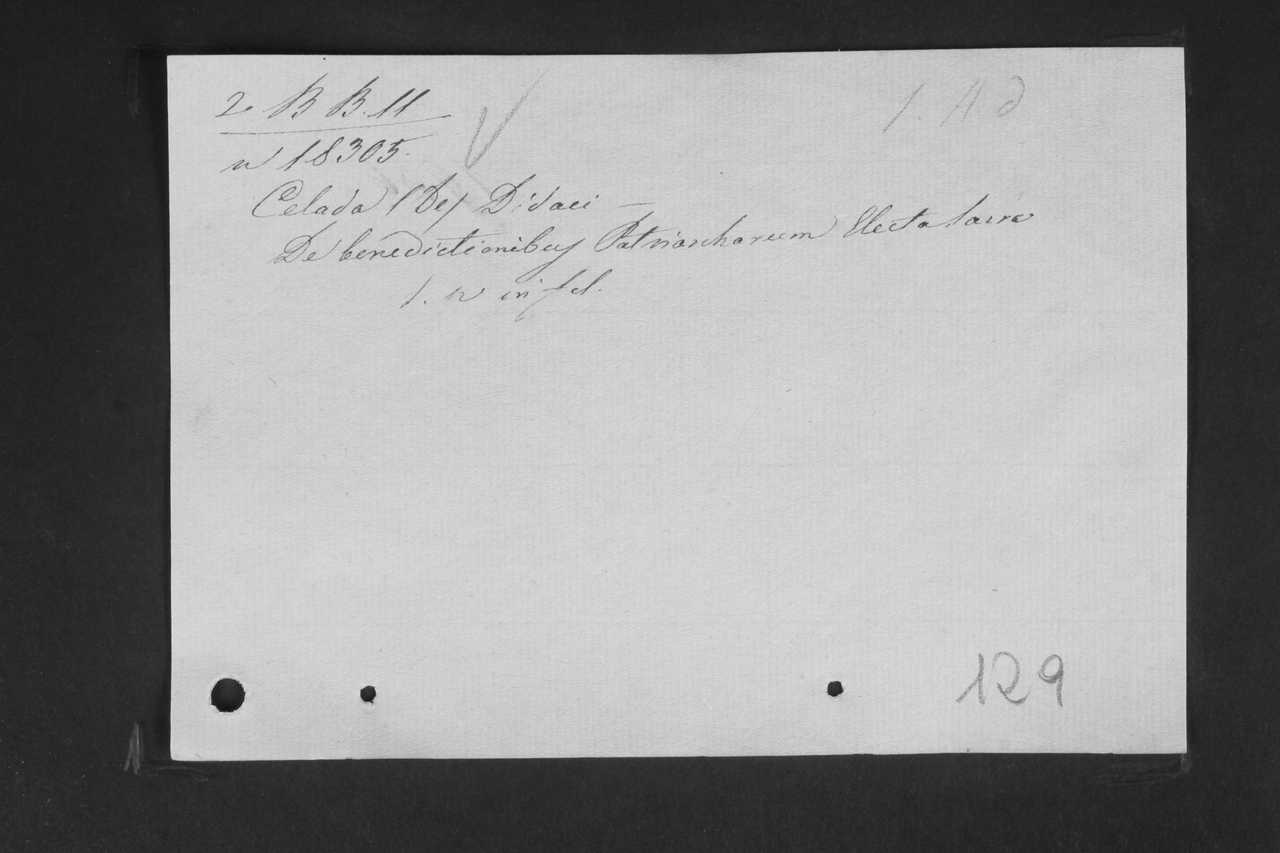 2. B B. 11
n 18305.
Celada (De) Didaci —
De benedictionibus Patriarcharum Electa Sacra
1. v in fol.
129